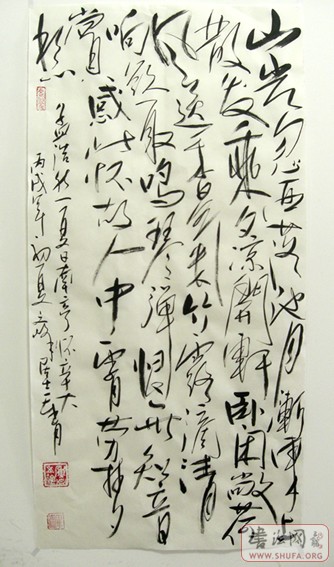 山光忽西落池月漸东上
散发乘夕凉開軒卧闲敞荷
风送香气竹露滴清
响欲取鸣琴弹恨无知音
赏感此怀故人中宵劳梦
想
孟浩然夏日南亭怀辛大
丙戌年初夏
书法网
WWW.SHUFA.ORG